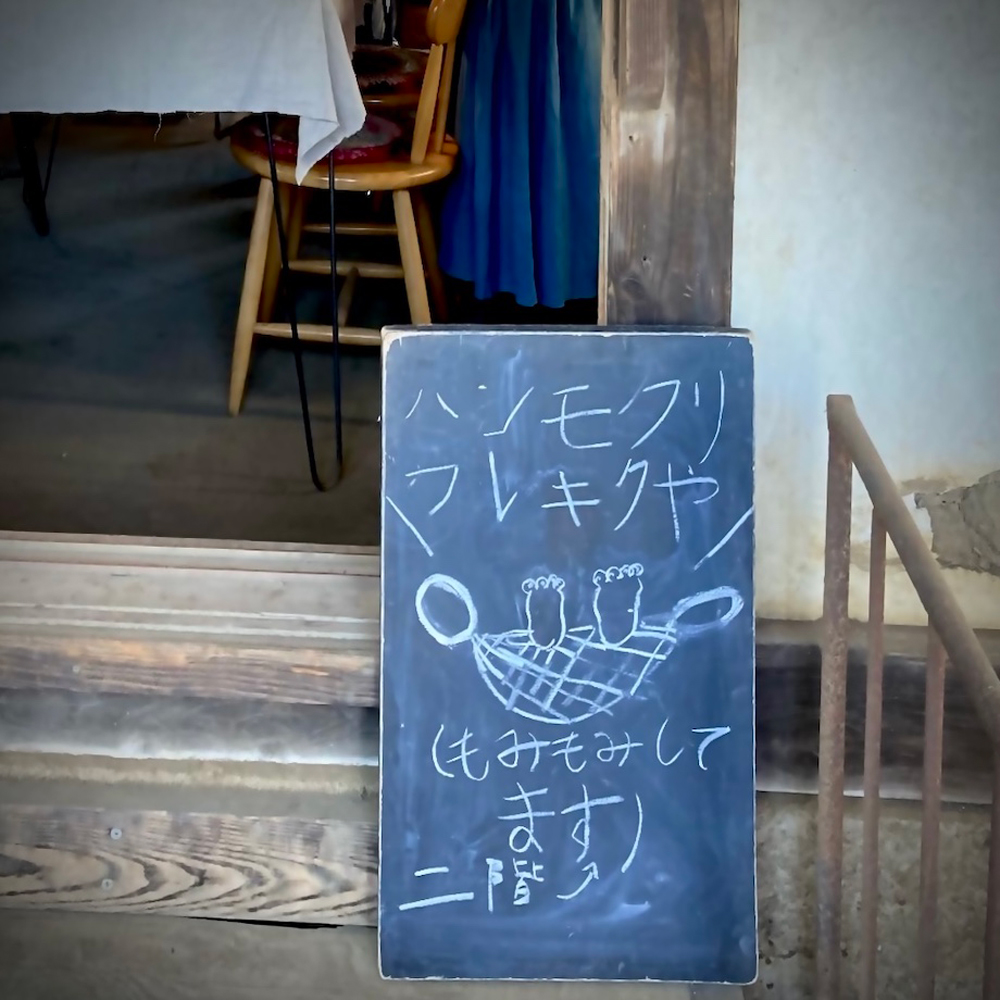 ハンモクリ
フレキクや
(もみもみして
ます)
二階↗